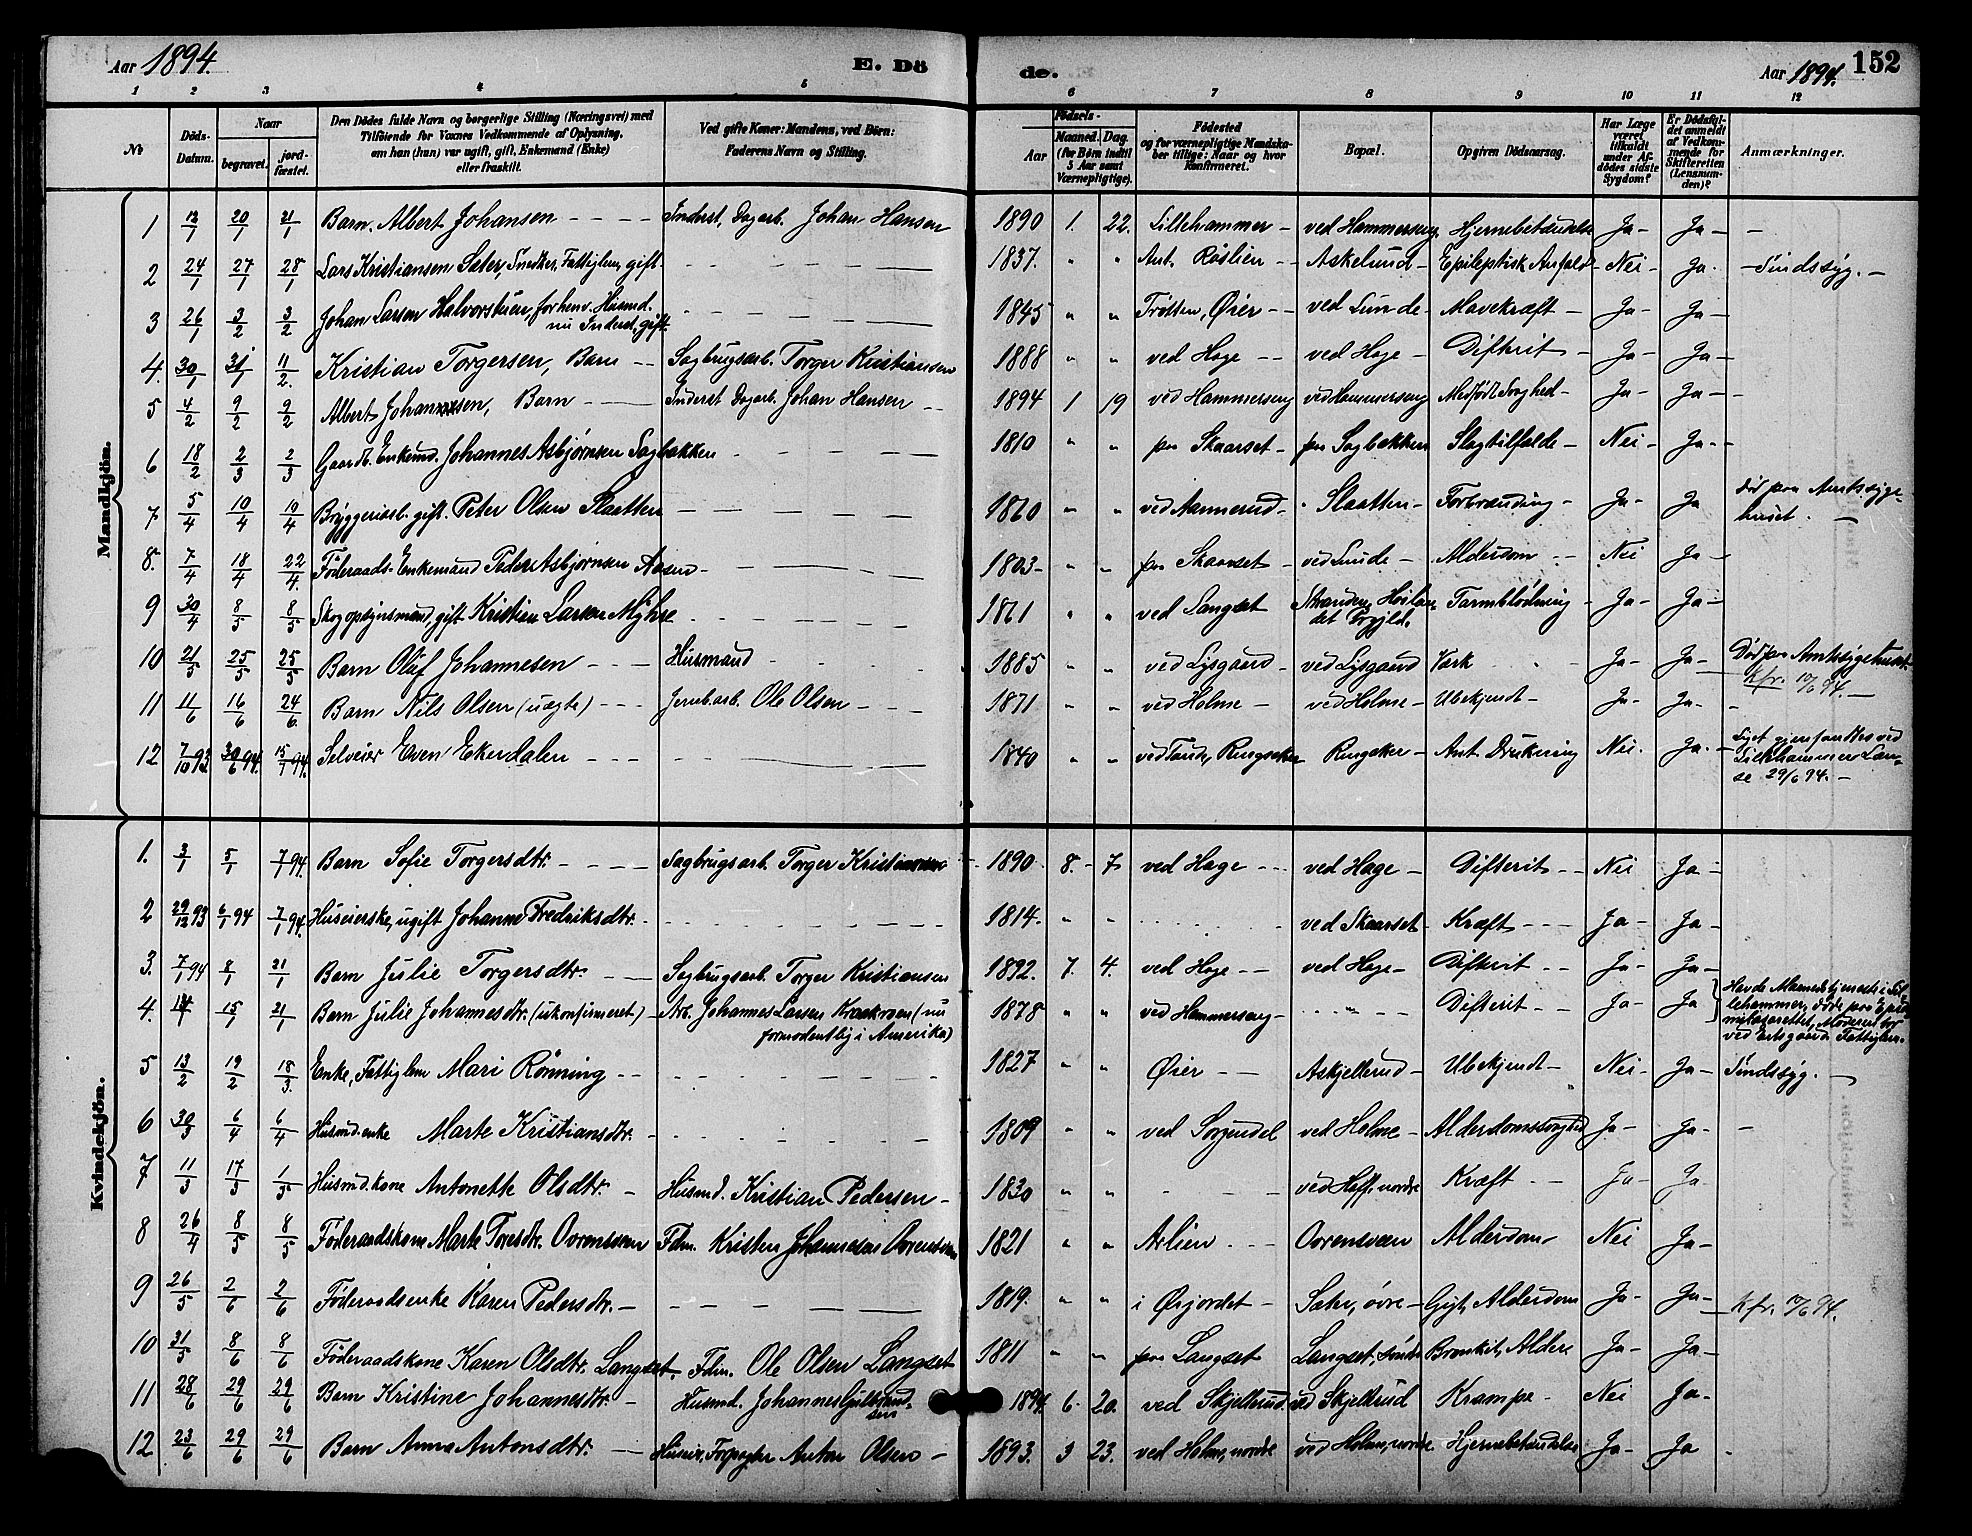 Aar 1894.
E. Dö
de.
Aar 1894.
152
1 2 3 4 5 6 7 8 9 10 11 12
No
Döds-Datum.
Naar
begravet.
jord-fæstet.
Den Dödes fulde Navn og borgerlige Stilling (Næringsvei) med
Tilföiende for Voxnes Vedkommende af Oplysning,
om han (hun) var ugift, gift, Enkemand (Enke)
eller fraskilt.
Ved gifte Koner: Mandens, ved Börn:
Faderens Navn og Stilling.
Födsels-
Aar
Maaned. Dag.
(for Börn indtil
5 Aar samt
Værnepligtige).
Födested
og for værnepligtige Mandska-
ber tillige: Naar og hvor
konfirmeret.
Bopæl.
Opgiven Dödsaarsag.
Har Læge
været
tilkaldt
under Af-
dödes sidste
Sygdom?
Er Dödsfal-
det anmeldt
af Vedkom-
mende for
Skifteretten
(Lensman-
den)?
Anmærkninger.
Mandkjön.
1 12/1 20/1 21/1 Barn. Albert Johansen Inderst, Dagarb. Johan Hansen 1890 1. 22. Lillehammer ved Hammerseng. Hjernebetændelse Ja Ja
2 24/1 27/1 28/1 Lars Kristiansen Sæter, Snedker, Fattiglem, gift 1837. " " Ant. Røslien Askelund Epileptisk Anfald Nei Ja. Sindssyg.
3 26/1 3/2 3/2 Johan Larsen Halvorstuen, forhenv. Husmd. nu Inderst, gift. 1845 " " Trötten, Øier ved Lunde Mavekræft Ja Ja
4. 30/1 31/1 11/2. Kristian Torgersen, Barn Sagbrugsarb. Torger Kristiansen 1888 " " ved Hage ved Hage Difterit Ja Ja
5 4/2 9/2 9/2 Albert Johansen, Barn Inderst Dagarb. Johan Hansen 1894 1 19 ved Hammerseng ved Hammerseng Medfödt Svaghed Ja Ja
6 18/2 2/3 2/3 Gaardb. Enkemd. Johannes Asbjørnsen Sagbakken 1810 " " paa Skaarset paa Sagbakken Slagtilfælde Nei Ja
7 5/4 10/4 19/4 Bryggeriarb. gift. Peter Olsen Slaatten 1860 " " ved Aannerud Slaatten Forbrænding Ja Ja Död paa Amtssyge-
huset.
8. 7/4 18/4 22/4. Föderaads-Enkemand Peder Asbjørnsen Aasen 1803 " " paa Skaarset ved Lunde Alderdom Nei Ja
9 30/4 8/5 8/5 Skogopsynsmand, gift Kristian Larsen Myhre 1861 " " ved Langset Tarmblödning Ja Ja
10 21/5 25/5 25/5 Barn Olaf Johannesen Husmand 1885 " " ved Lysgaard ved Lysgaard Værk Ja Ja Död paa Amtssygehuset.
Kfr. 17/6 94.
11 11/6 16/6 24/6. Barn Nils Olsen (uægte) Jernb.arb. Ole Olsen 1871 " " ved Holme ved Holme Ubekjendt Ja Ja
12 7/10 93 30/6 94. 15/7 94. Selveier Even Ekerdalen 1840 ved Tande, Ringsaker Ringsaker Ant. Drukning Nei. Ja. Liget gjenfandtes ved
Lillehammer Læn-
se 29/6 94.
Kvindekjön.
1. 3/1 5/1 7/1 94. Barn Sofie Torgersdtr. Sagbrugsarb. Torger Kristiansen 1890 8. 7 ved Hage ved Hage Difterit Nei Ja
2 29/12 93 6/1 94 7/1 94. Huseierske, ugift Johanne Fredriksdtr. 1814. " " ved Skaarset Kræft Ja Ja
3. 7/1 94 8/1 21/1 Barn Julie Torgersdtr. Sagbrugsarb. Torger Kristiansen 1892 7. 4. ved Hage ved Hage Difterit Ja Ja
4. 14/1 15/1 21/1 Barn Julie Johannesdtr. (ukonfirmeret) Arb. Johannes Larsen Kraakroen (nu
formodentlig i Amerika) 1878 " " ved Hammerseng " Difterit Ja Ja Havde tjeneste i Lil-
lehammer, döde paa Epide-
milasarettet, Moderen bor
ved Fattiglem.
5 13/2 19/2 18/3. Enke, Fattiglem Mari Rönning 1827 " " Øier Askjellerud Ubekjendt Nei Ja Sindssyg.
6 30/3 6/4 6/4 Husmd.enke Marte Kristiansdtr. 1809 " " ved Sorgendal ved Holme Alderdomssvaghed Ja Ja
7 11/3 17/3 1/5 Husmd.kone Antonette Olsdtr. Husmd. Kristian Pedersen 1830 " " ved Hoff, nordre Kræft Ja Ja
8 26/4 8/5 8/5 Föderaadskone Marte Toresdtr. Ovrensveen Fdm. Kristen Johannesen Ovrensveen 1821 " " Arlien Ovrensveen Alderdom Nei Ja
9 26/5 2/6 2/6 Föderaadsenke Karen Pedersdtr. 1819. " " i Örjordet Sæter, övre Gigt, Alderdom Ja Ja Kfr. 17/6 94.
10 31/5 8/6 8/6 Föderaadskone Karen Olsdtr. Langset. Fdm. Ole Olsen Langset 1811 " " paa Langset Langset, söndre Bronkit, Alderd. Ja Ja
11 28/6 29/6 29/6 Barn Kristine Johannesdtr. Husmd. Johannes Gulbrand-
sen 1894. 6. 20. ved Skjellerud ved Skjellerud Krampe Nei Ja
12 23/6 29/6 29/6 Barn Anna Antonsdtr. Huseier, Forpagter Anton Olsen 1893. 3 23. ved Holme, nordre ved Holme, nordre Hjernebetændelse Ja Ja